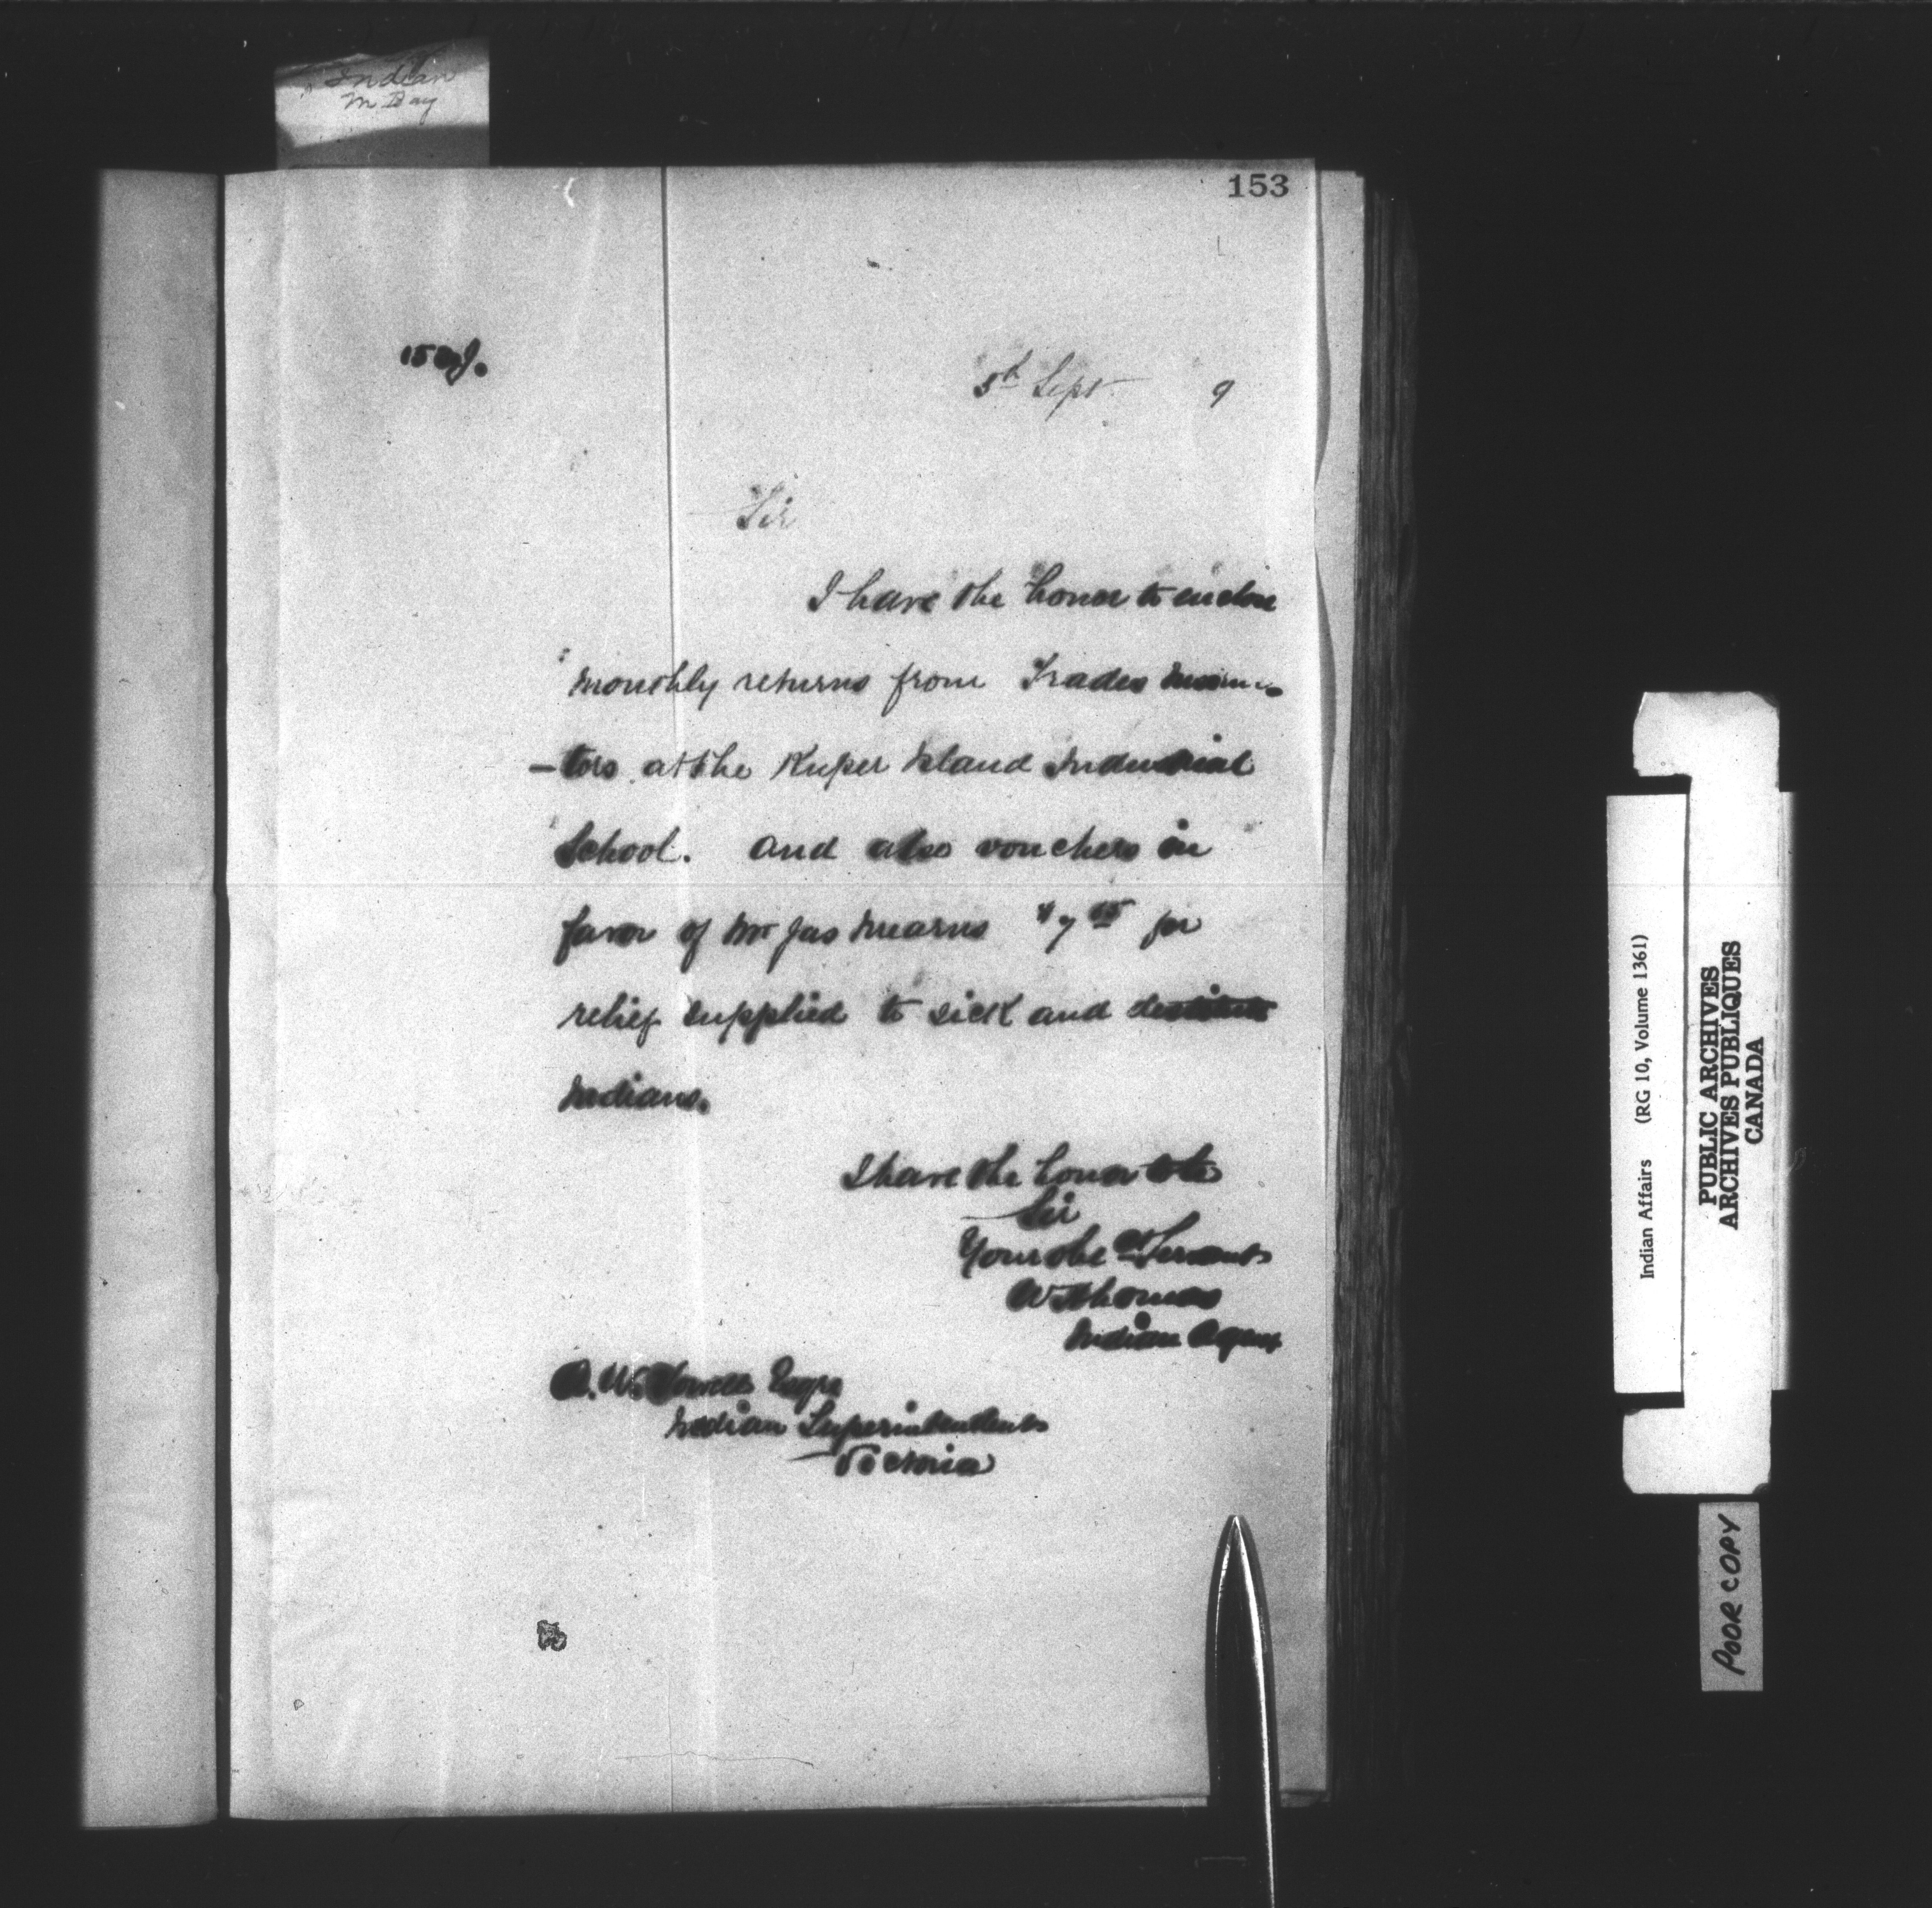 Indian
153
5th Sept 9
Sir
I have the honor to enclose
monthly returns from Trades
-tors at the Kuper Island Industrial
School. and also vouchers in
favor of Mr Jas Mearns $7 15 for
relief supplied to sick and destitute
Indians.
I have the honor to be
Sir
Your obe st Servant
W Thomas
Indian Agent
A. W. Vowell Esqre
Indian Superintendent
Victoria
Indian Affairs (RG 10, Volume 1361)
PUBLIC ARCHIVES
ARCHIVES PUBLIQUES
CANADA
POOR COPY